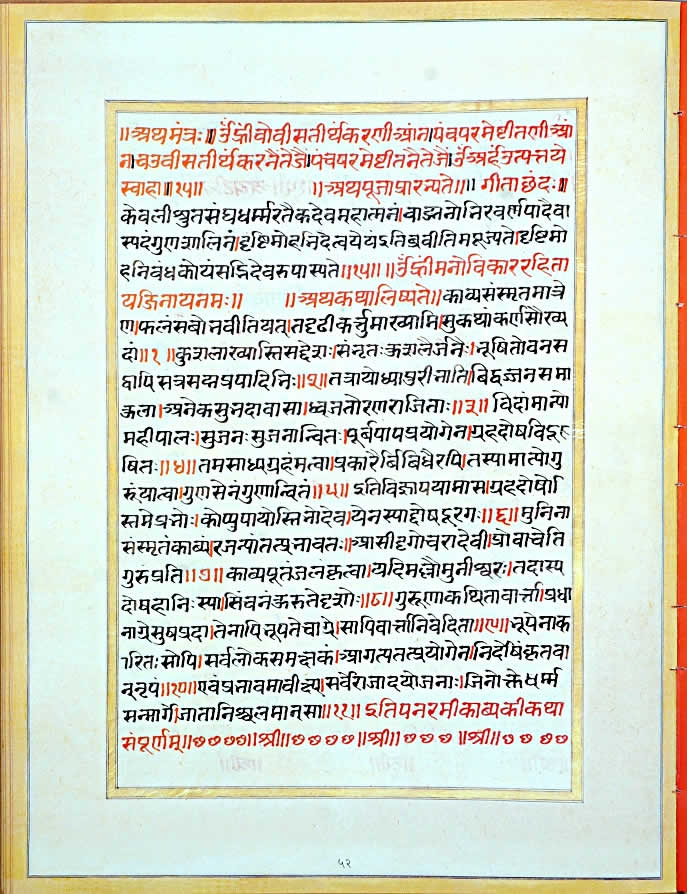 ॥अथमंत्रः॥ उँह्रींचोवीसतीर्थंकरणीआंन।पंचपरमेष्टीतणीआं
न।चउवीसतीर्थंकरनैंतेजैं।पंचपरमेष्टीतनैतेजैं।उँअर्हंउत्पत्तये
स्वाहा॥१५॥ ॥अथपूजाप्रारभ्यते॥॥गीताछंदः॥
केवलीश्रुतसंघधर्म्मरतैकदेवमहात्मनं।वाङ्मनोनिरवर्णपादैवा
स्पदंगुणशालिनं।दृष्टिमोहनिदेत्वयेयंइतिब्रवीतिमहज्यते।दृष्टिमो
हनिबंधकोयंसद्भिदेवरुपास्यते॥१५॥॥उँह्रींमनोविकाररहिता
यजिनायनमः॥ ॥अथकथालिष्यते॥काव्यसंस्मृतमात्रे
ण।फलंसर्बोनवीतियत्।तदृढीकर्त्तुमाख्यामि।सुकथांकर्णसौख्य
दां॥१॥कुशलाख्यास्तिसद्देशः।संभृतःकुशलैर्जनैः।भूषितोवनस
द्वापिसत्रसद्मप्रपादिभिः॥२॥तत्रायोध्यापुरीभाति।बिद्वज्जनसमा
कुला।अनेकसुभदावासा।ध्वजतोरणराजिताः॥३॥विदांमान्यो
महीपालः।सुजनःसुजनान्वितः।पूर्बपापप्रयोगेन।ग्रहदोषविदूष
षितः॥४॥तमसाध्यग्रहंमत्वा।प्रकारैर्बिबिधैरपि।तस्यामात्योगु
रुंयात्वा।गुणसेनंगुणान्वितं॥५॥इतिविज्ञापयामास।ग्रहदोषो
स्तिमेप्रभोः।कोप्युपायोस्तिनोदेव।येनस्याद्दोषदूरगः॥६॥मुनिना
संस्मृतंकाव्यं।रजन्यांतत्प्रभावतः।आसीदृगोचरादेवी।प्रोवाचेति
गुरुंप्रति॥७॥काव्यपूतंजलंकृत्वा।यदिमर्ब्बौमुनीश्वरः।तदास्य
दोषहानिःस्या।सिंचनंकुरुतेदृशोः॥८॥गुरूणाकथितावार्त्ता।प्रधा
नाग्रेसुषप्रदा।तेनापिनूपतेचाग्रे।सापिवार्त्तानिवेदिता॥९॥नूपेनाका
रितःसोपि।सर्वलोकसमक्षकं।आगत्यतत्प्रयोगेन।निर्दोषंकृतवा
न्नृपं॥१०॥एवंप्रभावमावीक्ष्य।सर्वेराजादयोजनाः।जिनोक्तेधर्म्म
सन्मार्गे।जातानिश्चलमानसा॥११॥इतिपनरमीकाव्यकीकथा
संपूर्णम्॥७७७७॥श्री॥७७७७॥श्री॥७७७॥श्री॥७७७७
५२